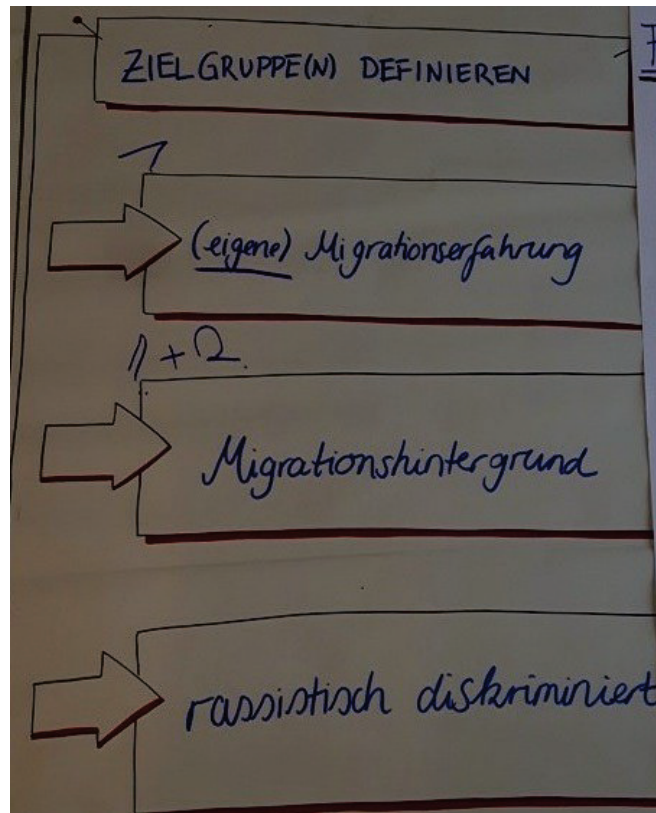 ZIELGRUPPE(N) DEFINIEREN
1
(eigene) Migrationserfahrung
1 + 2.
Migrationshintergrund
rassistisch diskriminiert